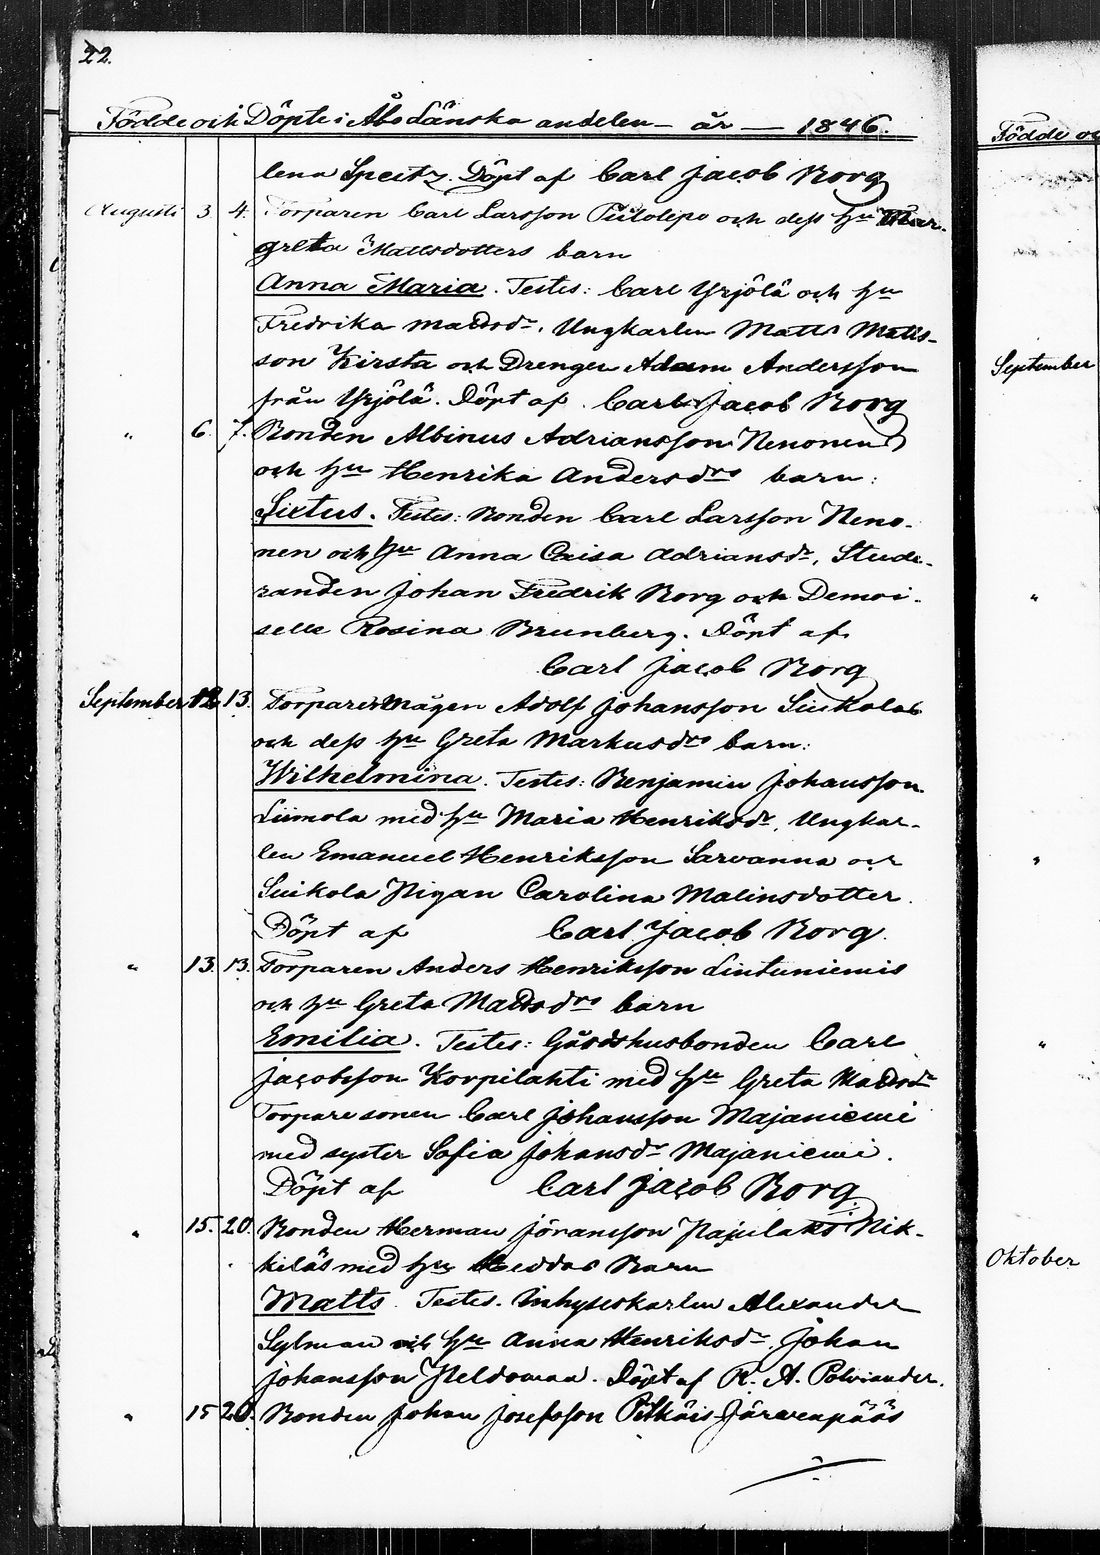 22.
Födde och Döpte i Åbo Länska andelen — år — 1846.
Födde oc
lena Speitz. Döpt af Carl Jacob Borg
Augusti 3. 4. Torparen Carl Larsson och dess hu Mar-
greta Mattsdotters barn
Anna Maria. Testes: Carl Yrjölä och hu
Fredrika Mattsdr. Ungkarlen Matts Matts-
son Kirsta och Drengen Adam Andersson
från Yrjölä. Döpt af Carl Jacob Borg
" 6. 7. Bonden Albinus Adriansson Nenonen
och hu Henrika Andersdrs barn:
Sixtus. Testes: Bonden Carl Larsson Neno-
nen och hu Anna Caisa Adriansdr, Stude-
randen Johan Fredrik Borg och Demoi-
selle Rosina Brunberg. Döpt af
Carl Jacob Borg
September 12. 13. Torparemågen Adolf Johansson Suikolas
och dess hu Greta Markusdrs barn:
Wilhelmina. Testes: Benjamin Johansson
Liimola med hu Maria Henriksdr, Ungkar-
len Emanuel Henriksson Sarvanna och
Suikola Pigan Carolina Malinsdotter.
Döpt af Carl Jacob Borg.
" 13. 13. Torparen Anders Henriksson Lintuniemis
och hu Greta Mattsdrs barn
Emilia. Testes: Gårdshusbonden Carl
Jacobsson Korpilahti med hu Greta Mattsdr
Torparesonen Carl Johansson Majaniemi
med syster Sofia Johansdr Majaniemi.
Döpt af Carl Jacob Borg.
" 15. 20. Bonden Herman Jöransson Pajulaks Nik-
kiläs med hu Heddas Barn
Matts. Testes. Inhyseskarlen Alexander
Sylman och hu Anna Henriksdr. Johan
Johansson Peldomaa. Döpt af R. A. Polviander.
" 15 20. Bonden Johan Josefsson Pitkäis Järvenpääs
September
"
"
"
Oktober